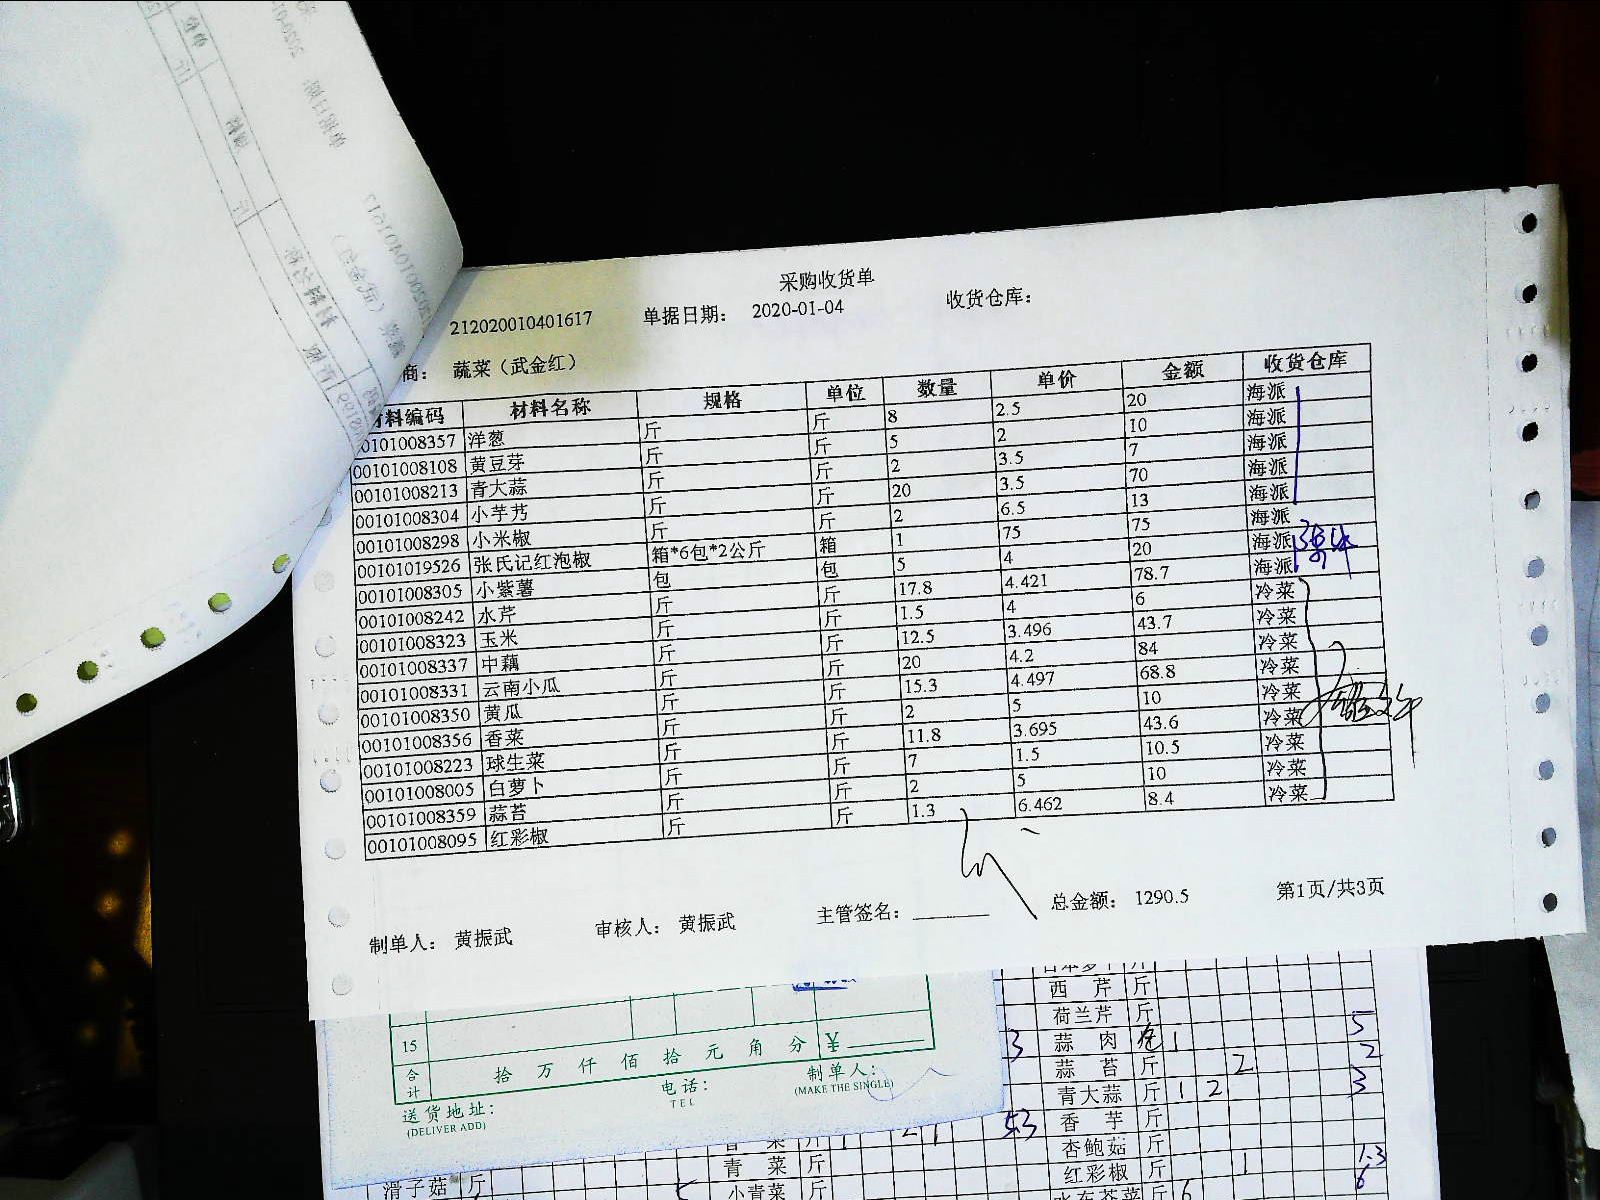 采购收货单
212020010401617 单据日期: 2020-01-04 收货仓库:
商: 蔬菜（武金红）
材料编码 材料名称 规格 单位 数量 单价 金额 收货仓库
0101008357 洋葱 斤 斤 8 2.5 20 海派
00101008108 黄豆芽 斤 斤 5 2 10 海派
00101008213 青大蒜 斤 斤 2 3.5 7 海派
00101008304 小芋艿 斤 斤 20 3.5 70 海派
00101008298 小米椒 斤 斤 2 6.5 13 海派
00101019526 张氏记红泡椒 箱*6包*2公斤 箱 1 75 75 海派
00101008305 小紫薯 包 包 5 4 20 海派
00101008242 水芹 斤 斤 17.8 4.421 78.7 海派
00101008323 玉米 斤 斤 1.5 4 6 冷菜
00101008337 中藕 斤 斤 12.5 3.496 43.7 冷菜
00101008331 云南小瓜 斤 斤 20 4.2 84 冷菜
00101008350 黄瓜 斤 斤 15.3 4.497 68.8 冷菜
00101008356 香菜 斤 斤 2 5 10 冷菜
00101008223 球生菜 斤 斤 11.8 3.695 43.6 冷菜
00101008005 白萝卜 斤 斤 7 1.5 10.5 冷菜
00101008359 蒜苔 斤 斤 2 5 10 冷菜
00101008095 红彩椒 斤 斤 1.3 6.462 8.4 冷菜
制单人: 黄振武 审核人: 黄振武 主管签名: 总金额: 1290.5 第1页/共3页
15
合计 拾 万 仟 佰 拾 元 角 分 ￥
送货地址: 电话: 制单人:
(DELIVER ADD) TEL (MAKE THE SINGLE)
西芹 斤
荷兰芹 斤 5
3 蒜肉 1
蒜苔 斤 2 2
青大蒜 斤 1 2 3
5.3 香芋 斤
杏鲍菇 斤
青菜 斤 红彩椒 斤 1 1.3
滑子菇 斤 小青菜 斤 6 6